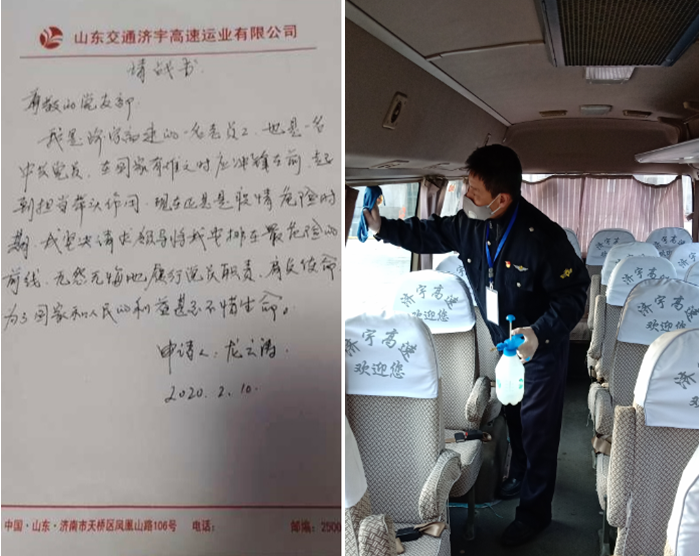 山东交通济宇高速运业有限公司
请战书
尊敬的党支部
我是济宇高速的一名老员工、也是一名
中共党员,在国家有难之时应冲锋在前,起
到担当带头作用,现在正是疫情危险时
期,我坚决请求领导将我安排在最危险的
前线,无怨无悔地履行党员职责,肩负使命
为了国家和人民的利益甚至不惜生命。
申请人:龙云涛
2020.2.10.
中国·山东·济南市天桥区凤凰山路106号 电话: 邮编:2500
济宇高速
欢迎您
济宇高速
欢迎您
济宇高速
欢迎您